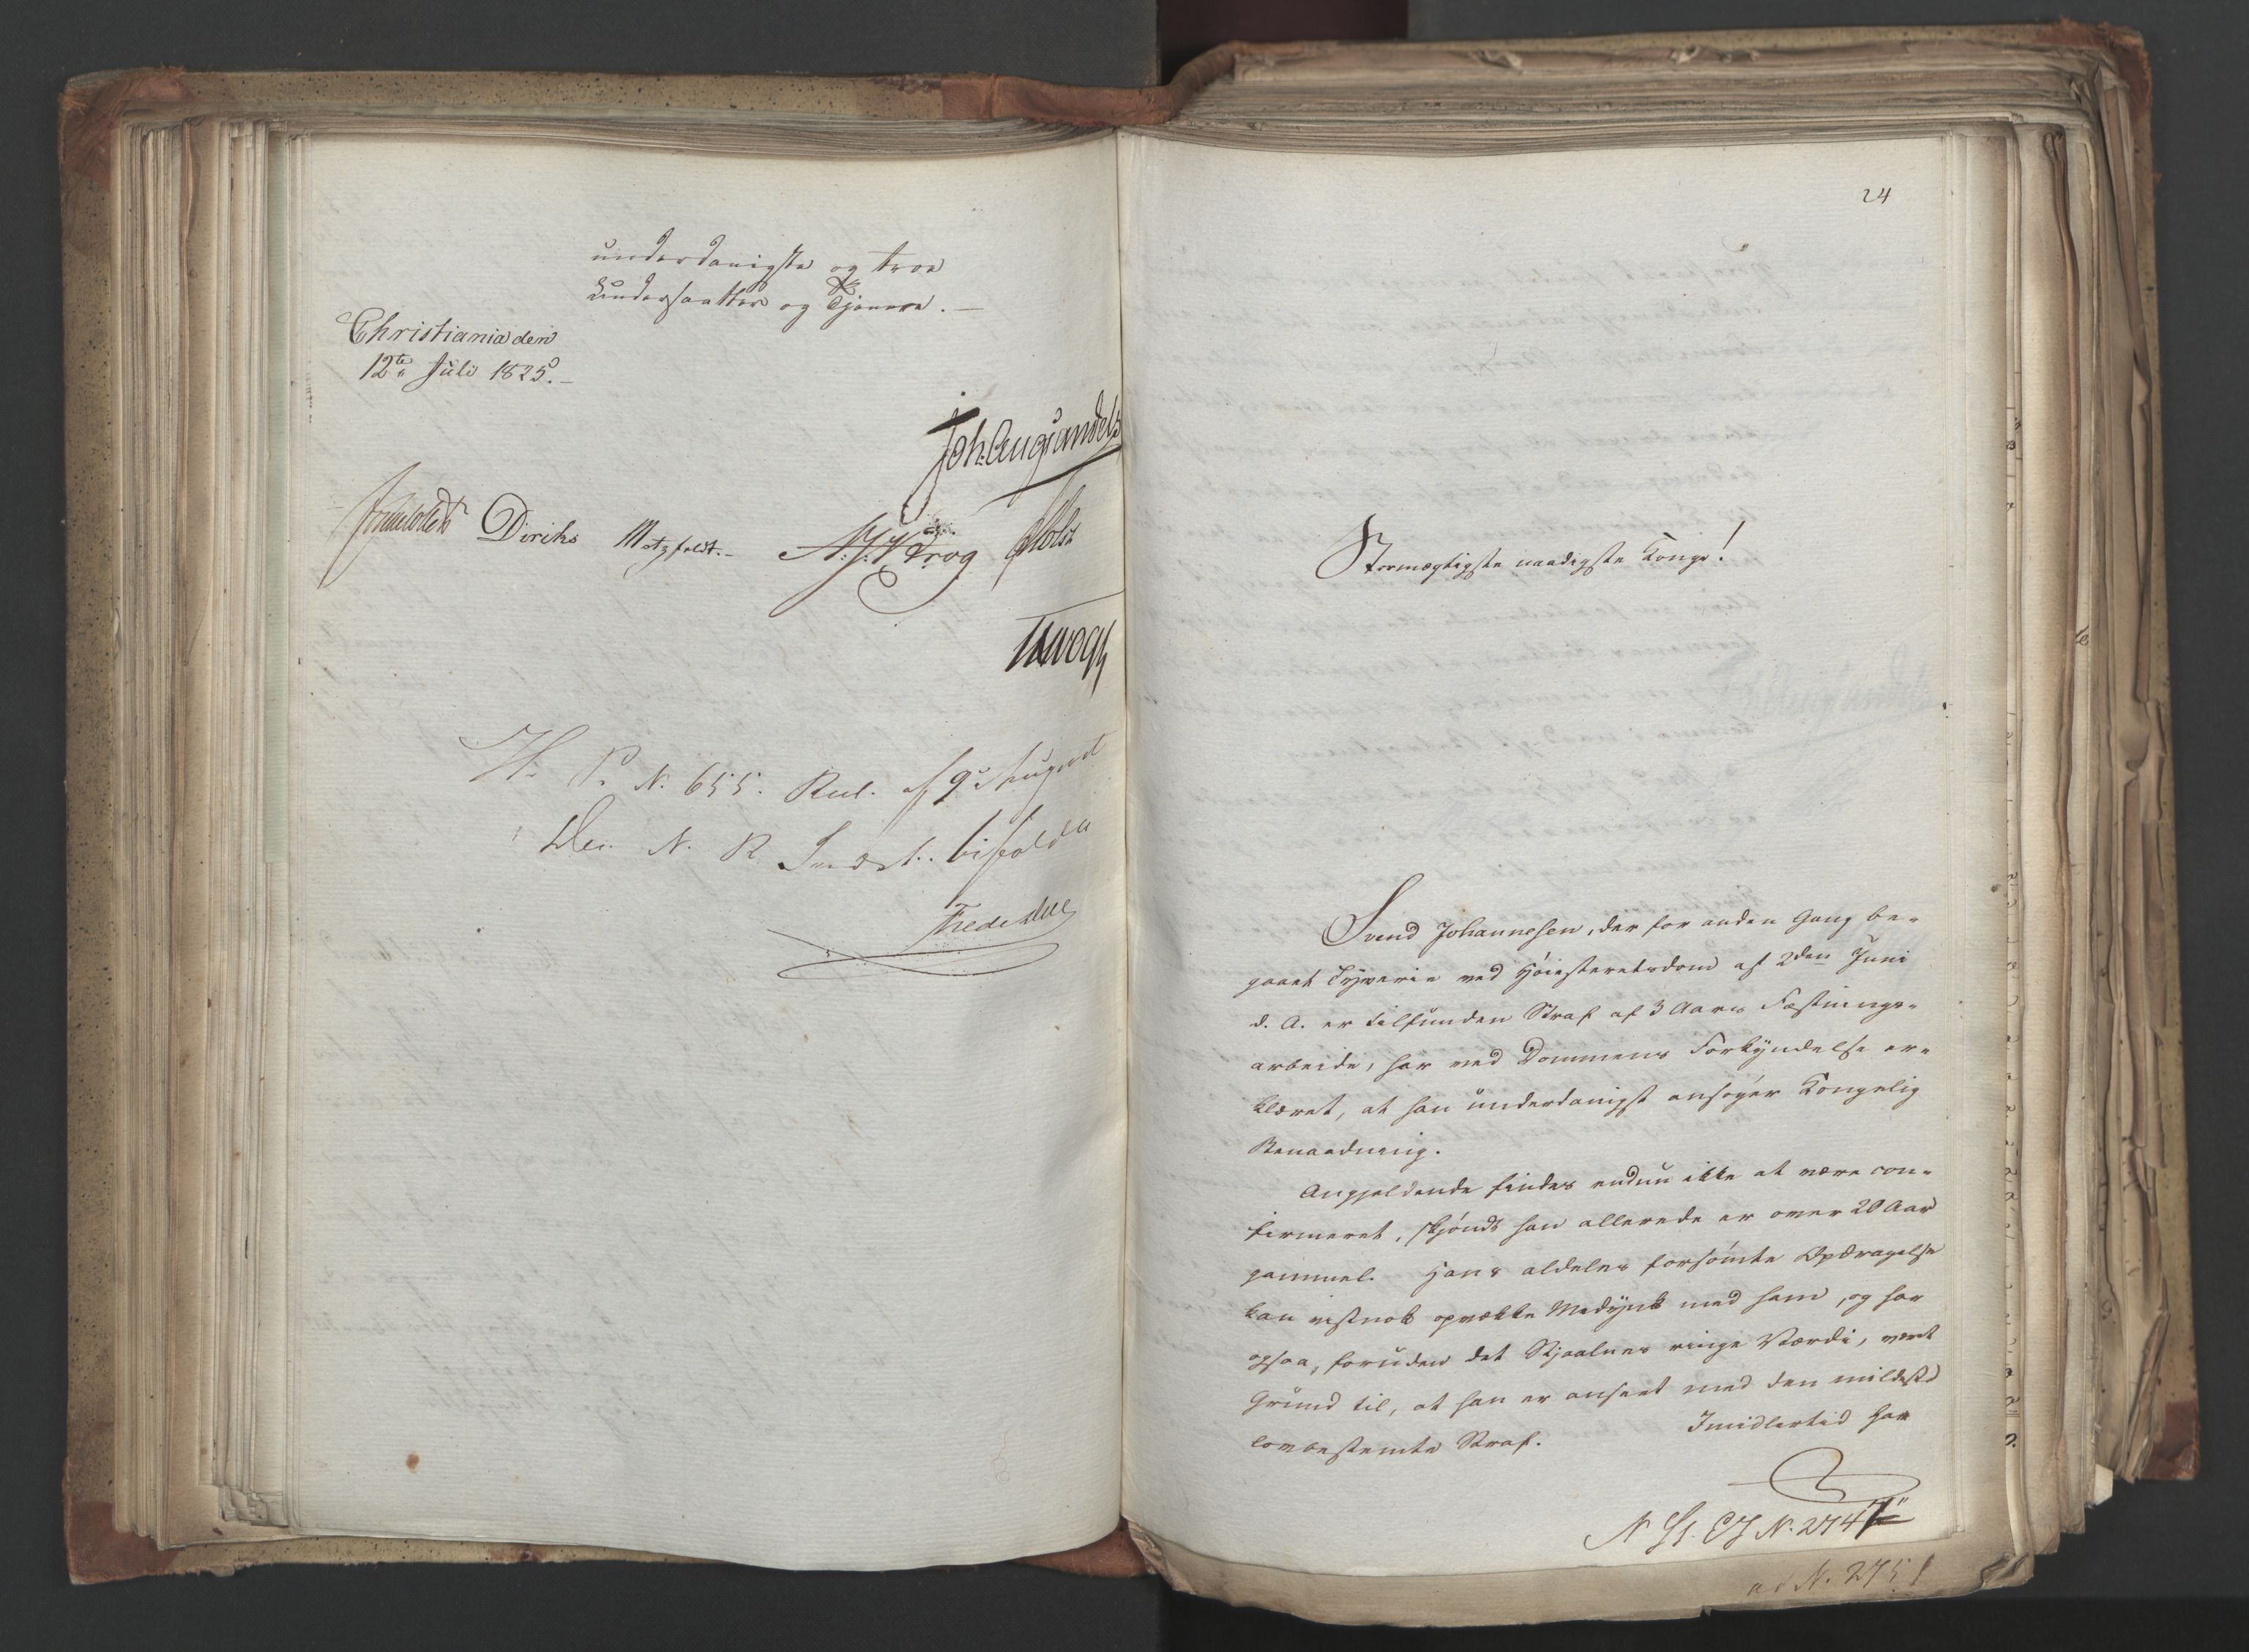 underdanigste og troe
Undersaatter og Tjenere. —
Christiania den
12te Juli 1825. —
Joh: Aug: Sandels
Diriks Motzfeldt. — N: J: Krog Holst
H. P. N. 655. Res. af 9 August
Der N. R. Indst. bifaldes
Frede Due
24
Stormægtigste naadigste Konge!
Svend Johannesen, der for anden Gang be-
gaaet Tyverie ved Høiesteretsdom af 2den Juni
d. A. er tilfunden Straf af 3 Aars Fæstnings-
arbeide, har ved Dommens Forkyndelse er-
klæret, at han underdanigst ansøger Kongelig
Benaadning.
Angjeldende findes endnu ikke at være con-
firmeret, skjøndt han allerede er over 20 Aar
gammel. Hans aldeles forsømte Opdragelse
kan vistnok opvække Medynk med ham, og har
ogsaa, foruden det Stjaalnes ringe Værdi, været
Grund til, at han er anseet med den mildeste
lovbestemte Straf. Imidlertid har
N. 2747
ad N. 2751